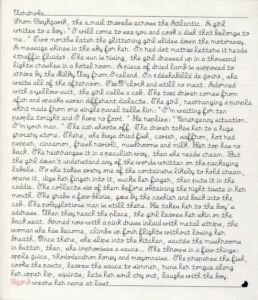 Wardrobe
From Reykjavik, the e.mail travels across the Atlantic. A girl
writes to a boy: "I will come to see you and cook a dish that belongs to
me." Two months later the glittering girl slides down the motorway.
A message shines in the sky for her. In red dot matrix letters it reads
traffic fluides. The sun is rising, the girl dressed up in a thousand
lights crashes in a hotel room. A piece of dried lamb is supposed to
arrive by the Milky Way from Iceland. In déshabillé de soirée, she
waits all of the afternoon. Five O'clock and still no meat. Adorned
with a yellow suit, the girl calls a cab. The taxi driver comes from
afar and speaks seven different dialects. The girl, rearranging a purple
skirt made from one single panel tells him: "I'm waiting for ten
people tonight and I have no food." He replies: "Emergency situation,
I'm your man." The cab shoots off. The driver takes her to a huge
grocery store. There, she buys dried fish, caviar, saffron, hot red
pepper, cinnamon, fresh ravioli, mushrooms and milk. Her top has no
back. She rearranges it in a peculiar way, then she needs cream. But
the girl doesn't understand any of the words written on the packaging
labels. So she takes every one of the containers likely to hold cream,
opens it, dips her finger into it, sucks her finger, then puts it in the
caddie. She collects six of them before obtaining the right taste in her
mouth. She grabs a few blinis, goes by the cashier and back into the
cab. The polyglottous man is still there. He takes her to the boy's
address. When they reach the place, the girl leaves her skin on the
back seat. Armed now with a pink dress inlaid with metal strips, the
woman she has become, climbs up four flights without losing her
breath. Once there, she slips into the kitchen, sautés the mushrooms
in butter, then, she improvises a sauce. She throws in a few things:
apple juice, rhododendron honey and mayonnaise. She prepares the fish,
cooks the pasta, leaves the sauce to simmer, runs her tongue along
her upper lip, squints, lets her soul cry out, laughs with the boy.
wears her name at last.